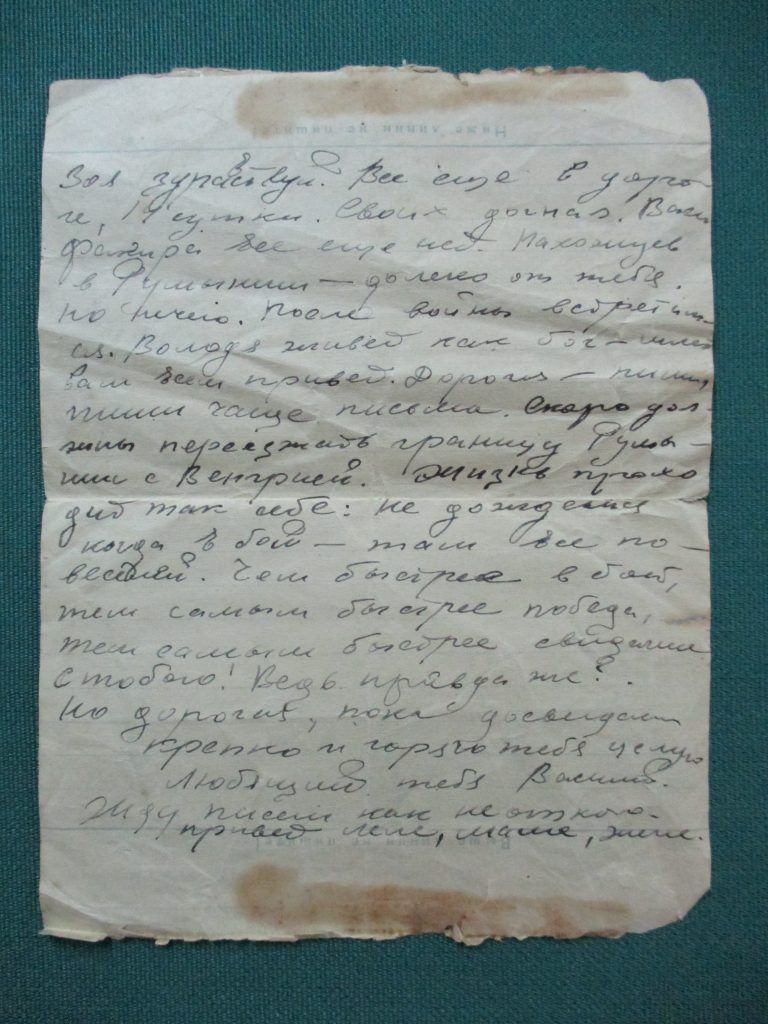 Ниже линии не пишите!
Зоя здравствуй. Все еще в доро-
ге, сутки. Своих догнал. Ваги
все еще нет. Находимся
в Румынии — далеко от тебя.
но ничего. После войны встретим-
ся. Володя живет как бог — шлет
вам всем привет. Дорогая — пиши
пиши чаще письма. Скоро дол-
жны переезжать границу Румы-
нии с Венгрией. Жизнь прохо
дит так себе: не дождемся
когда в бой — там все по-
веселей. Чем быстрее в бой,
тем самым быстрее победа,
тем самым быстрее свидание
с тобою! Ведь правда же?.
Но дорогая, пока досвидания
крепко и горячо тебя целую
Любящий тебя Василий.
Жду писем как
привет Леле, Маше, Жене.
Выше линии не пишите!